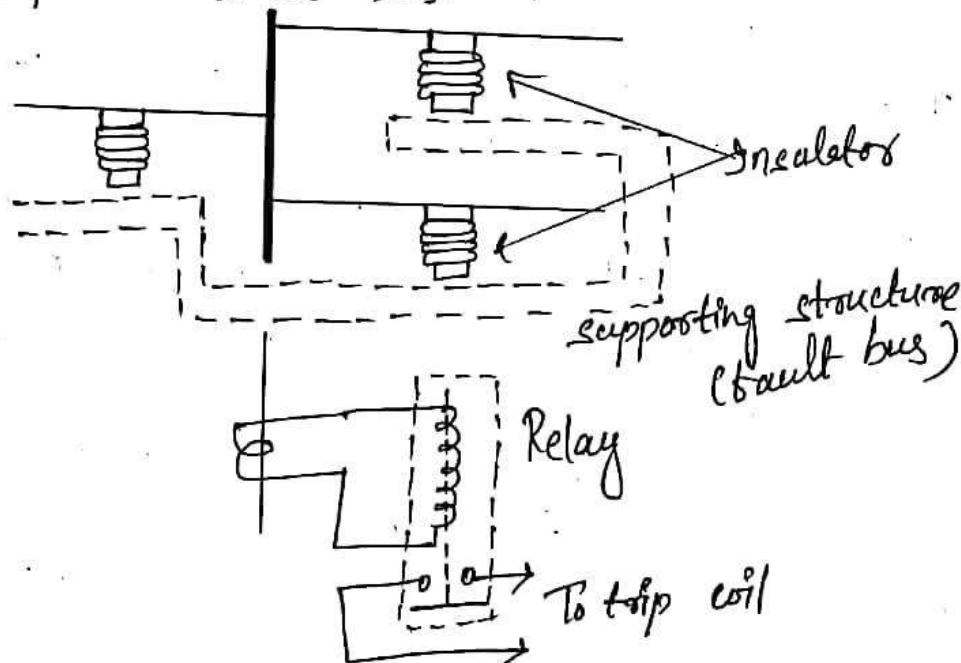 Insulator
supporting structure
(fault bus)
Relay
To trip coil